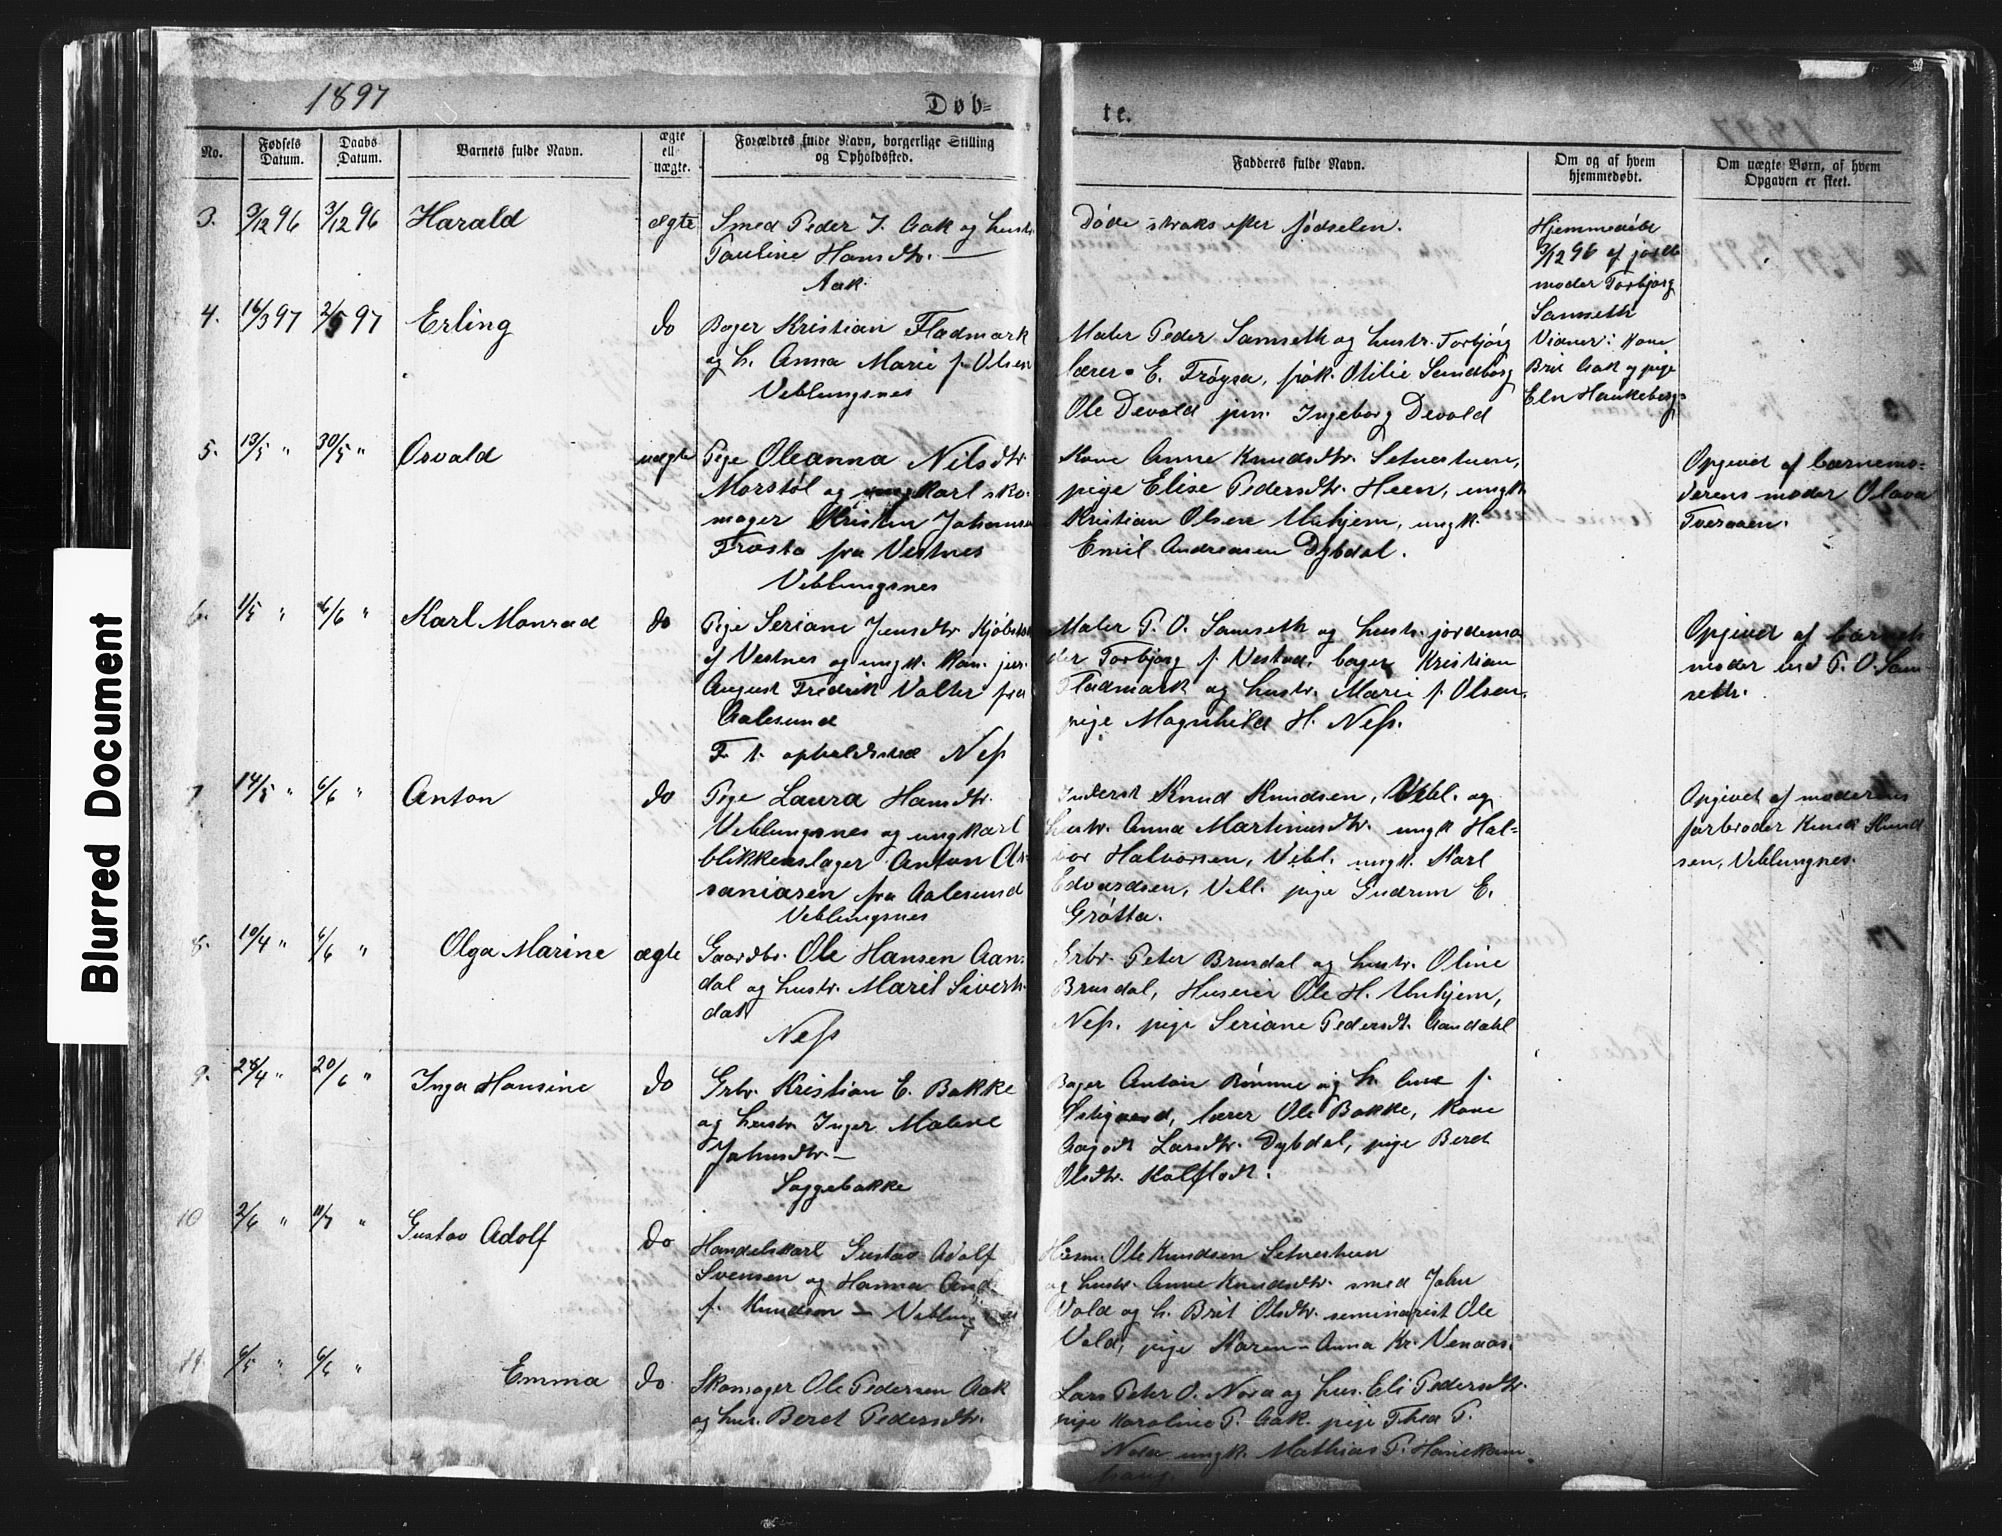 1897
Døb-
te.
No.
Fødsels
Datum.
Daabs
Datum.
Barnets fulde Navn.
ægte
ell
uægte.
Forældres fulde Navn, borgerlige Stilling
og Opholdssted.
Fadderes fulde Navn.
Om og af hvem
hjemmedøbt.
Om uægte Børn, af hvem
Opgaven er skeet.
3. 3/12 96 3/12 96 Harald ægte
Smed Peder J. Aak og hustr.
Pauline Hansdtr. —
Aak
Døde straks efter fødselen.
Hjemmedøbt
3/12 96 af jorde
moder Torbjørg
Samseth
Vidner: Kone
Brit Aak og pige
Eln Haukeberg
4. 16/3 97 2/5 97 Erling do
Bager Kristian Fladmark
og h. Anna Marie f. Olsen
Veblungsnes
Maler Peder Samseth og hustr. Torbjørg
lærer E. Frøysa, frøk. Otilie Sundborg
Ole Devold jun. Ingeborg Devold
5. 13/5 " 30/5 " Osvald uægte
Pige Oleanna Nilsdtr.
Morstøl og ungkarl sko-
mager Kristen Johansen
Frosta fra Vestnes
Veblungsnes
Kone Anne Knudsdtr. Setnestuen,
pige Elise Pedersdtr. Heen, ungk.
Kristian Olsen Unhjem, ungk.
Emil Andreasen Dybdal.
Opgivet af barnemo-
derens moder Olava
Tveraaen.
6. 1/5 " 6/6 " Karl Monrad do
Pige Seriane Jensdtr.
af Vestnes og ungk.
August Fredrik Valter fra
Aalesund
F. t. opholdssted Neſs
Maler P. O. Samseth og hustr. jordemo
der Torbjørg f. Vestad, bager Kristian
Fladmark og hustr. Marie f. Olsen,
pige Magnhild H. Neſs.
Opgivet af barnets
moder ved P. O. Sam
seth.
7. 14/5 " 6/6 " Anton do
Pige Laura Hansdtr.
Veblungsnes og ungkarl
blikkenslager Anton
saniasen fra Aalesund
Veblungsnes
Inderst Knud Knudsen, Vebl. og
hustr. Anna Martinusdtr. ungk Hal-
vor Halvorsen, Vebl. ungk. Karl
Edvardsen, Vebl. pige Gudrun E.
Grøtta.
Opgivet af moderens
farbroder Knud Knud
sen, Veblungnes.
8. 10/4 " 6/6 " Olga Marine ægte
Gaardbr. Ole Hansen Aan-
dal og hustr. Marit Siverts-
dat
Neſs
Grbr. Peter Brudal og hustr. Oline
Brudal, Huseier Ole H. Unhjem,
Neſs. pige Seriane Pedersdt. Aandahl
9. 24/4 " 20/6 " Inga Hansine do
Grbr. Kristian E. Bakke
og hustr. Inger Malene
Johnsdtr. —
Soggebakke
Bager Anton Rømme og h. f.
Østigaard, lærer Ole Bakke, Kone
Aagodt Larsdtr. Dybdal, pige Berit
Olsdtr. Kalflodt.
10 2/6 " 11/7 " Gustav Adolf do
Handelskarl Gustav Adolf
Svensen og Hanna And
f. Knudsen — Veblung es
Husm. Ole Knudsen Setnestuen
og hustr. Anne Knudsdtr. smed John
Vold og h. Brit Olsdtr. seminarist Ole
Vold, pige Karen Anna Kr. Venaas.
11 6/5 " 6/6 " Emma do
Skomager Ole Pedersen Aak
og hus. Beret Pedersdtr.
Lars Peter O. Nora og hus. Eli Pedersdtr.
pige Karoline P. Aak. pige Thea P.
ungk. Mathias P. Hanekam
haug
Blurred Document